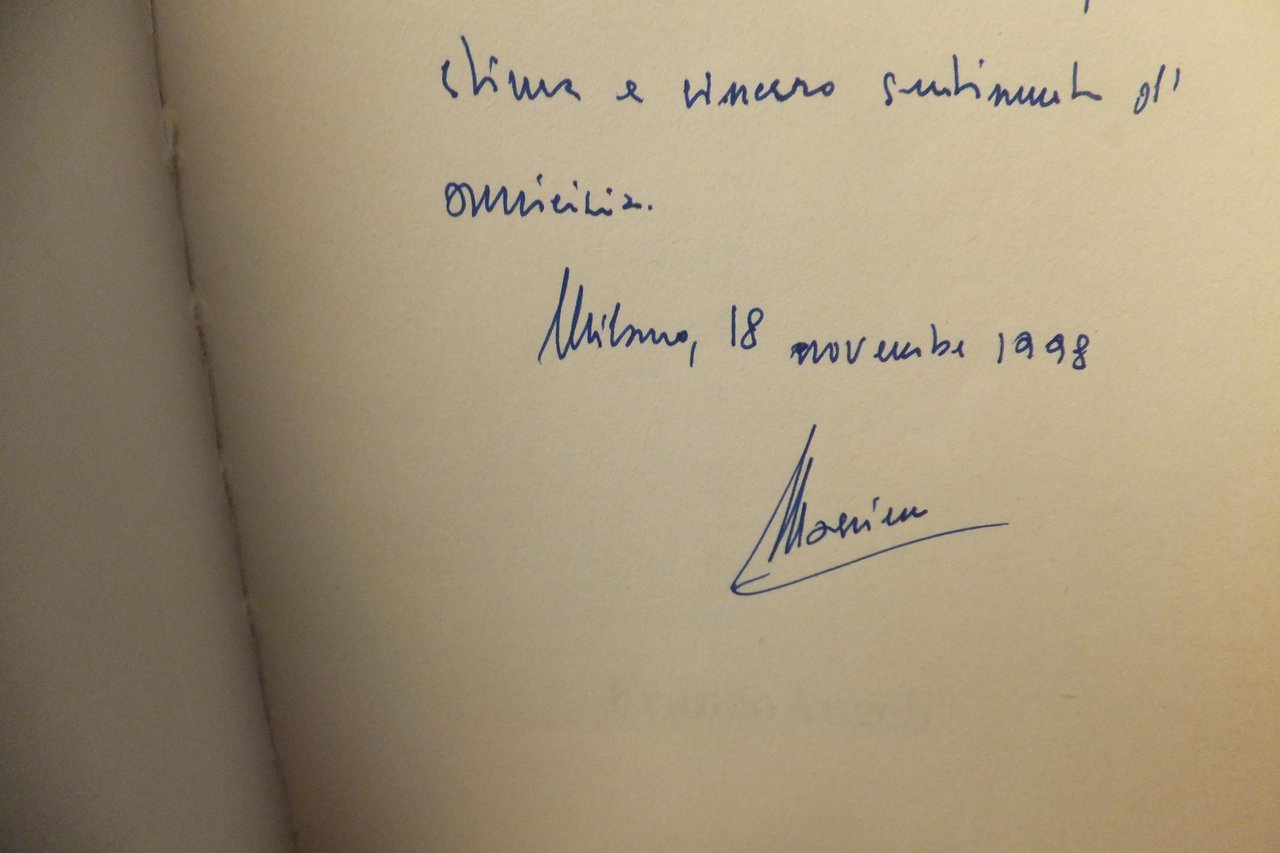 stima e sincero sentimento di
amicizia.
Milano, 18 novembre 1998